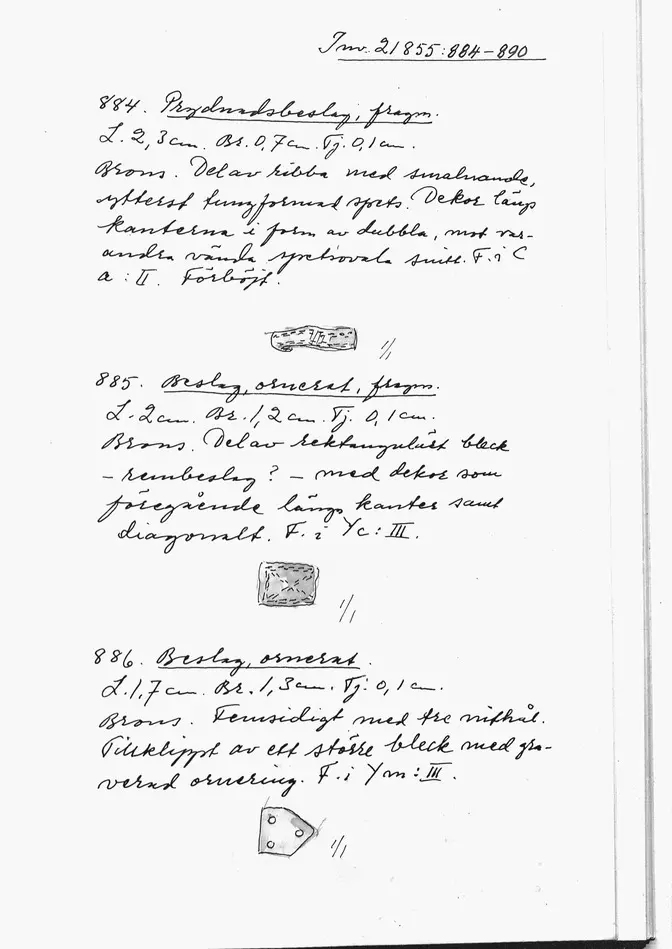 Inv. 21855:884-890
884. Prydnadsbeslag, fragm.
L. 2,3 cm. Br. 0,7 cm. Tj. 0,1 cm.
Brons. Del av ribba med smalnande,
ytterst tungformad spets. Dekor längs
kanterna i form av dubbla, mot var-
andra vända spetsovala snitt. F. i C
a : II. Förböjt.
1/1
885. Beslag, ornerat, fragm.
L. 2 cm. Br. 1,2 cm. Tj. 0,1 cm.
Brons. Del av rektangulärt bleck
- rembeslag? - med dekor som
föregående längs kanter samt
diagonalt. F. i Yc : III.
1/1
886. Beslag, ornerat.
L. 1,7 cm. Br. 1,3 cm. Tj. 0,1 cm.
Brons. Femsidigt med tre nithål.
Tillklippt av ett större bleck med gra-
verad ornering. F. i Ym : III.
1/1